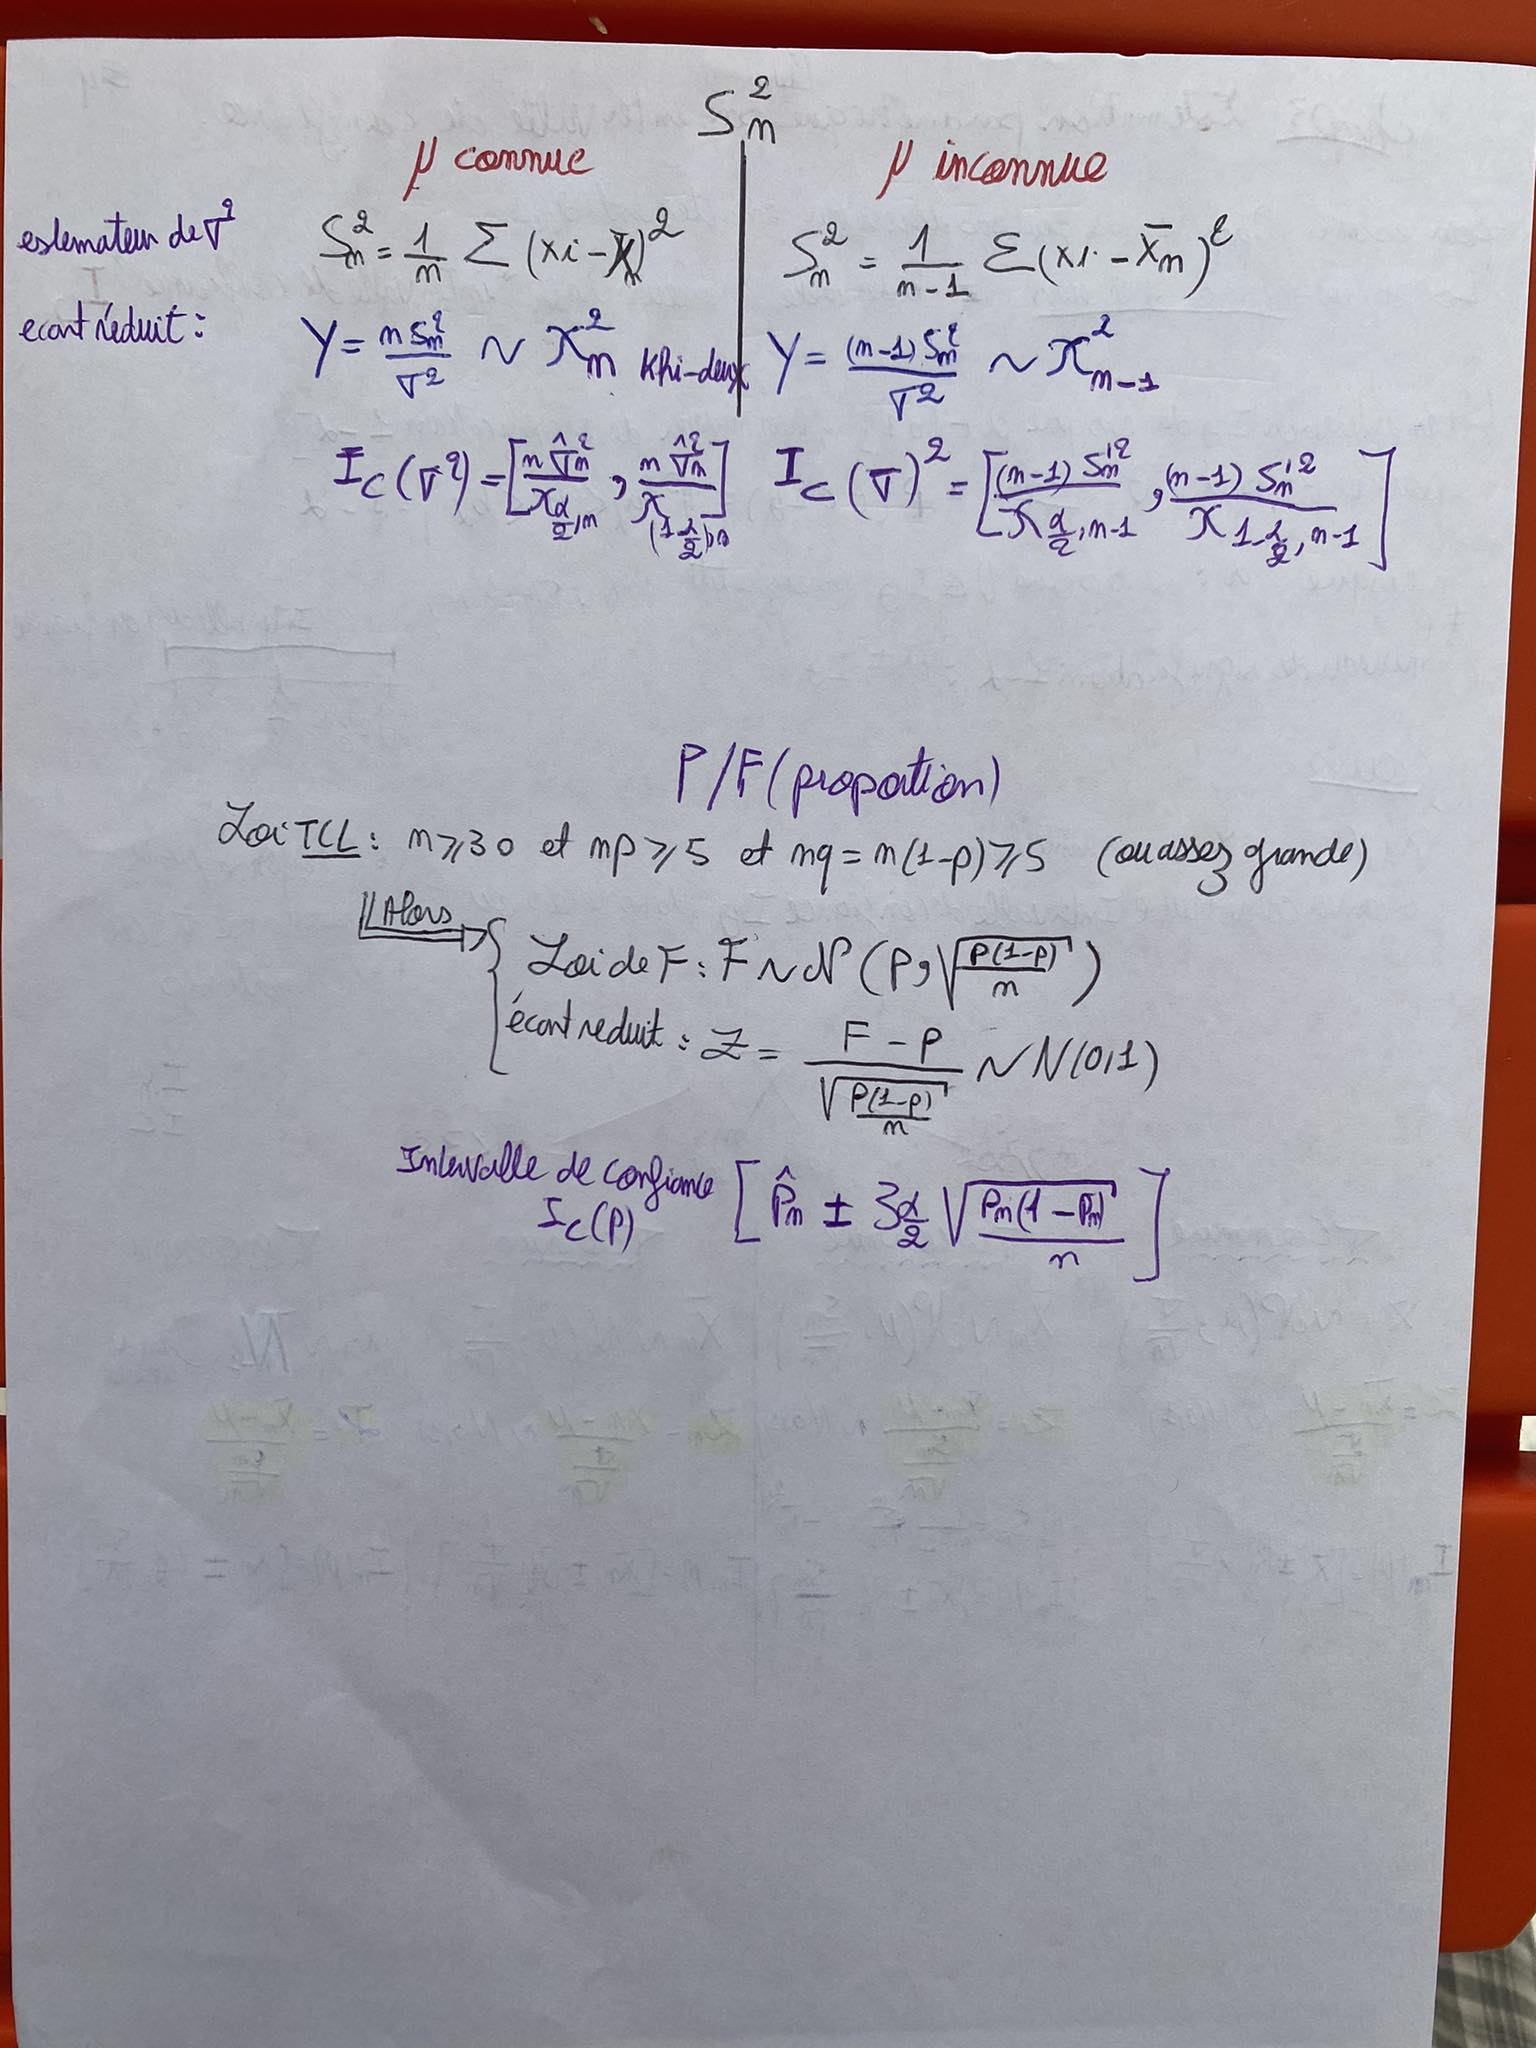 S²ₙ
μ connue | μ inconnue
estemateur de σ² S²ₙ = 1/n Σ (xi - X̄ₙ)² | S²ₙ = 1/(n-1) Σ (xi - X̄ₙ)²
ecart réduit : Y = nS²ₙ/σ² ~ χ²ₙ Khi-deux | Y = (n-1)S²ₙ/σ² ~ χ²ₙ₋₁
I_C(σ²) = [nσ̂²ₙ/χ_{α/2, n} , nσ̂²ₙ/χ_{(1-α/2), n}] I_C(σ)² = [(n-1)S'²ₙ/χ_{α/2, n-1} , (n-1)S'²ₙ/χ_{1-α/2, n-1}]
P/F (propotion)
Loi TCL : n ⩾ 30 et np ⩾ 5 et nq = n(1-p) ⩾ 5 (ou assez grande)
Alors
Loi de F : F ~ N(p, √(p(1-p)/n))
écart reduit : Z = (F - p)/√(p(1-p)/n) ~ N(0,1)
Intervalle de confiance [p̂ₙ ± z_{α/2} √(pₙ(1-pₙ)/n)]
I_C(p)